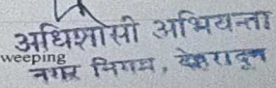 अधिशासी अभियन्ता
weeping
नगर निगम, देहरादून